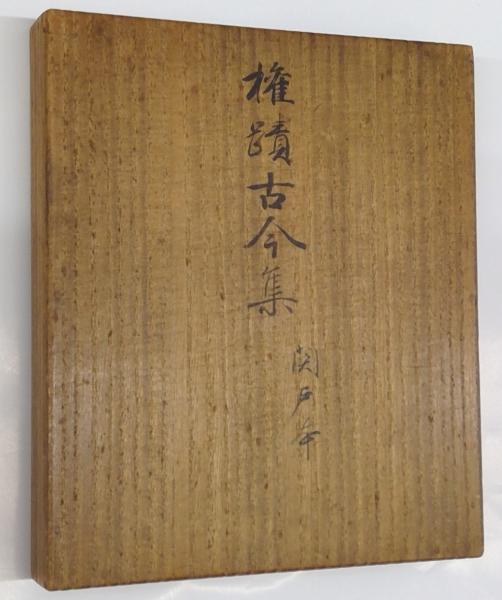 権蹟古今集
関戸本